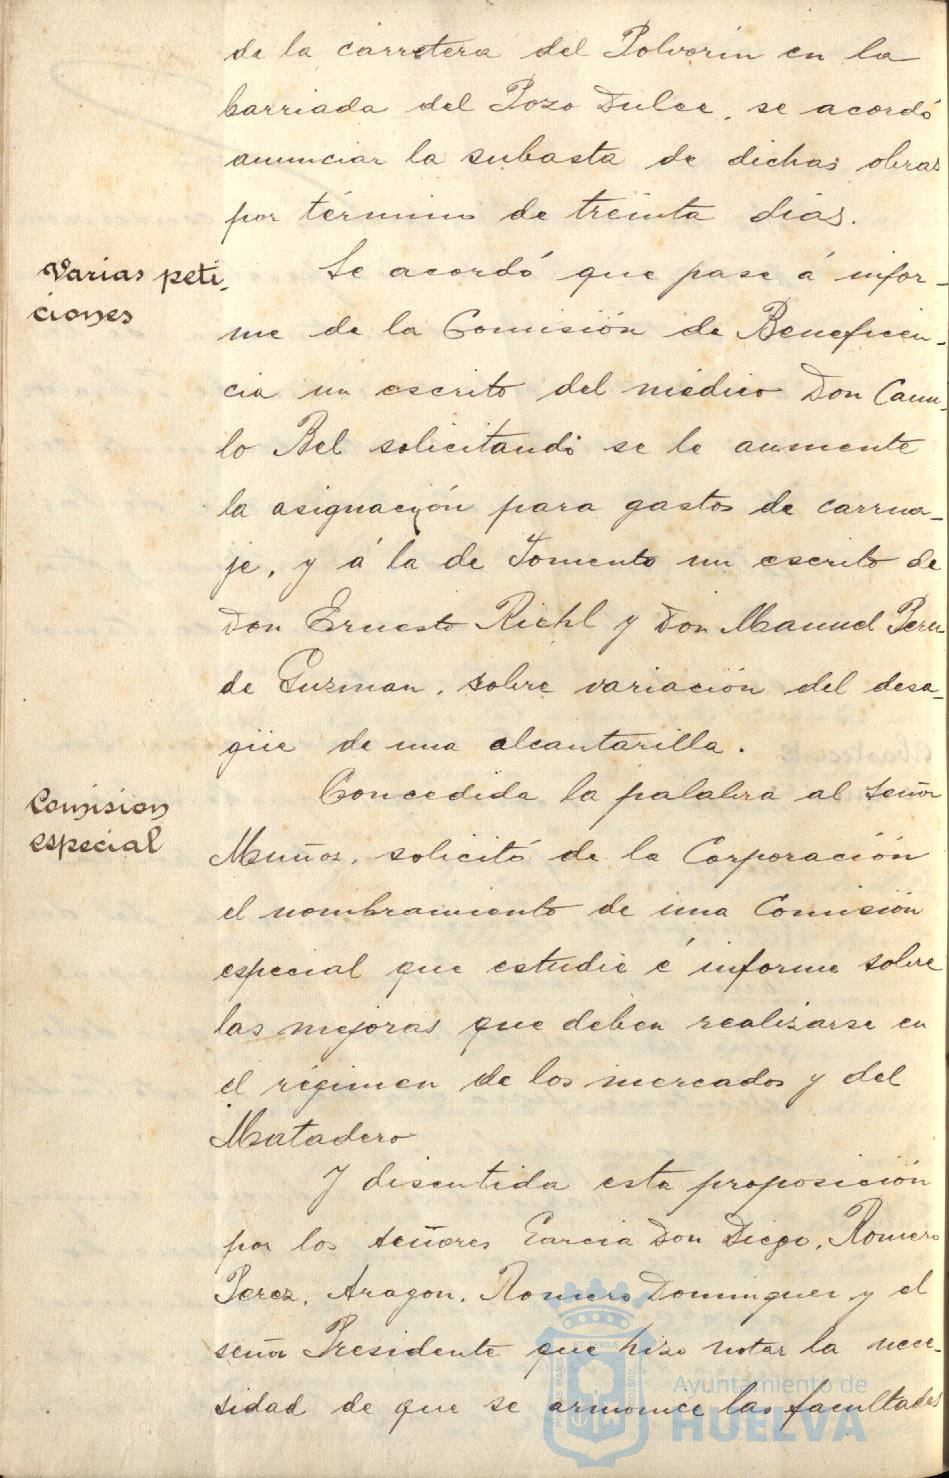 de la carretera del Polvorin en la
barriada del Pozo Dulce, se acordó
anunciar la subasta de dichas obras
por término de treinta dias.
Varias peti-
ciones
Se acordó que pase á infor-
me de la Comisión de Beneficen-
cia un escrito del médico Don Cami-
lo Bel solicitando se le aumente
la asignación para gastos de carrua-
je, y á la de Fomento un escrito de
Don Ernesto Richl y Don Manuel Perez
de Guzman, sobre variación del desa-
güe de una alcantarilla.
Comision
especial
Concedida la palabra al señor
Muños, solicitó de la Corporación
el nombramiento de una Comisión
especial que estudie é informe sobre
las mejoras que deben realizarse en
el régimen de los mercados y del
Matadero
Y discutida esta proposición
por los señores Garcia Don Diego, Romero
Perez, Aragon, Romero Dominguez y el
señor Presidente que hizo notar la nece-
sidad de que se armonice las facultades
Ayuntamiento de
HUELVA